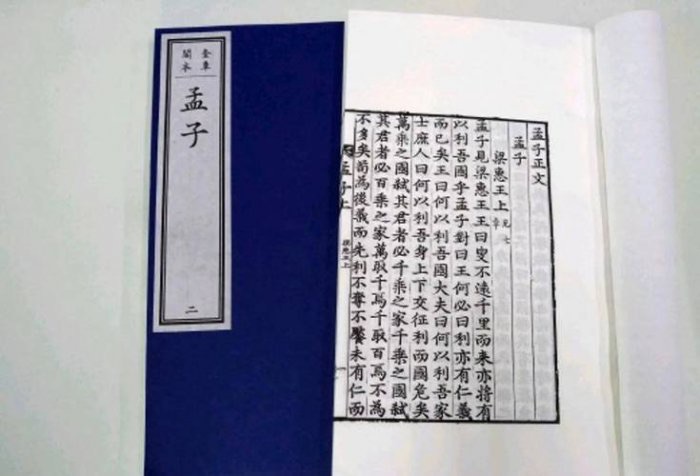 奎章
閣本
孟子
二
孟子正文
孟子
梁惠王上 凡七
章
孟子見梁惠王王曰叟不遠千里而来亦將有
以利吾國乎孟子對曰王何必曰利亦有仁義
而已矣王曰何以利吾國大夫曰何以利吾家
士庶人曰何以利吾身上下交征利而國危矣
萬乘之國弑其君者必千乘之家千乘之國弑
其君者必百乘之家萬取千焉千取百焉不為
不多矣苟為後義而先利不奪不饜未有仁而
孟子上 梁惠王上 一